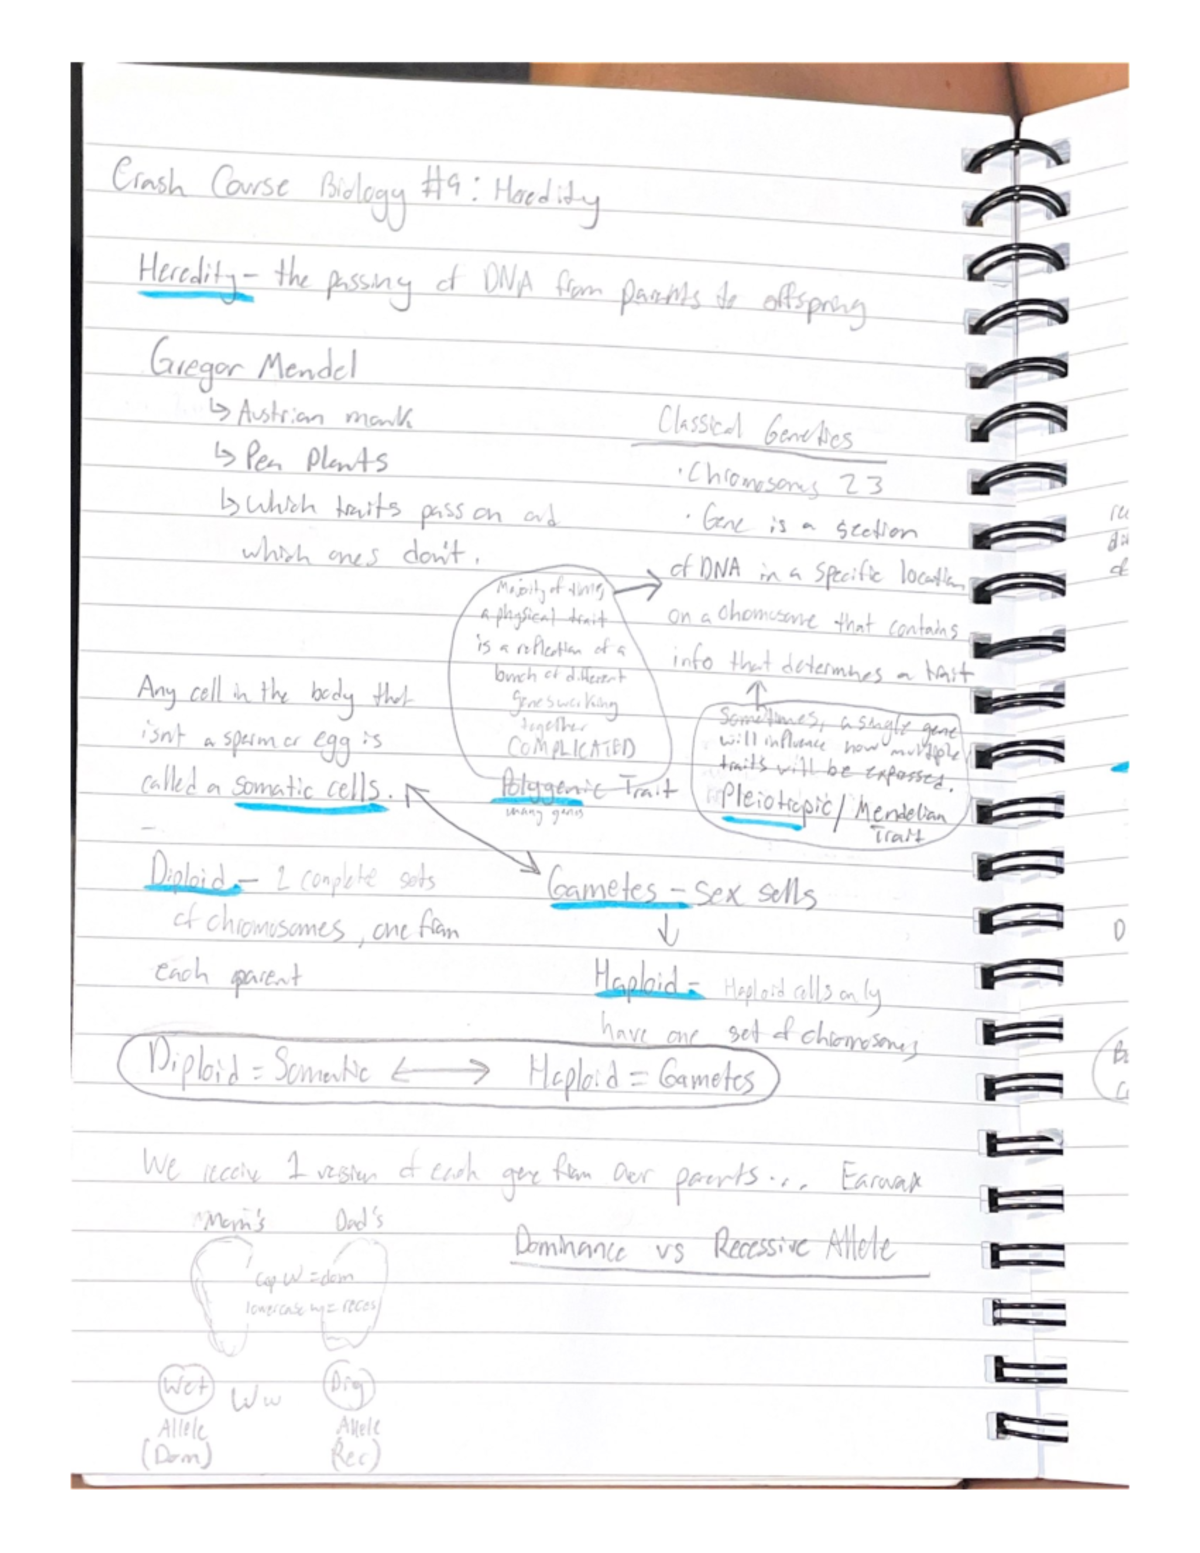 Crash Course Biology #9: Heredity
Heredity - the passing of DNA from parents to offspring
Gregor Mendel
↳ Austrian monk
↳ Pea Plants
↳ which traits pass on and
which ones don't.
Classical Genetics
· Chromosomes 23
· Gene is a section
of DNA in a specific location
on a chomosome that contains
info that determines a trait
Majority of times
a physical trait
is a reflection of a
bunch of different
genes working
together
COMPLICATED
Polygenic Trait
many genes
Sometimes, a single gene
will influence how multiple
traits will be expossed.
Pleiotropic / Mendelian
Trait
Any cell in the body that
isnt a sperm or egg is
called a somatic cells.
Diploid - 2 complete sets
of chromosomes, one from
each parent
Gametes - sex sells
↓
Haploid - Haploid cells only
have one set of chromosomes
Diploid = Somatic ⟷ Haploid = Gametes
We receive 1 version of each gene from our parents... Earwax
Mom's Dad's
Dominance vs Recessive Allele
cap W = dom
lowercase w = reces
Wet Ww Dry
Allele Allele
(Dom) (Rec)
D